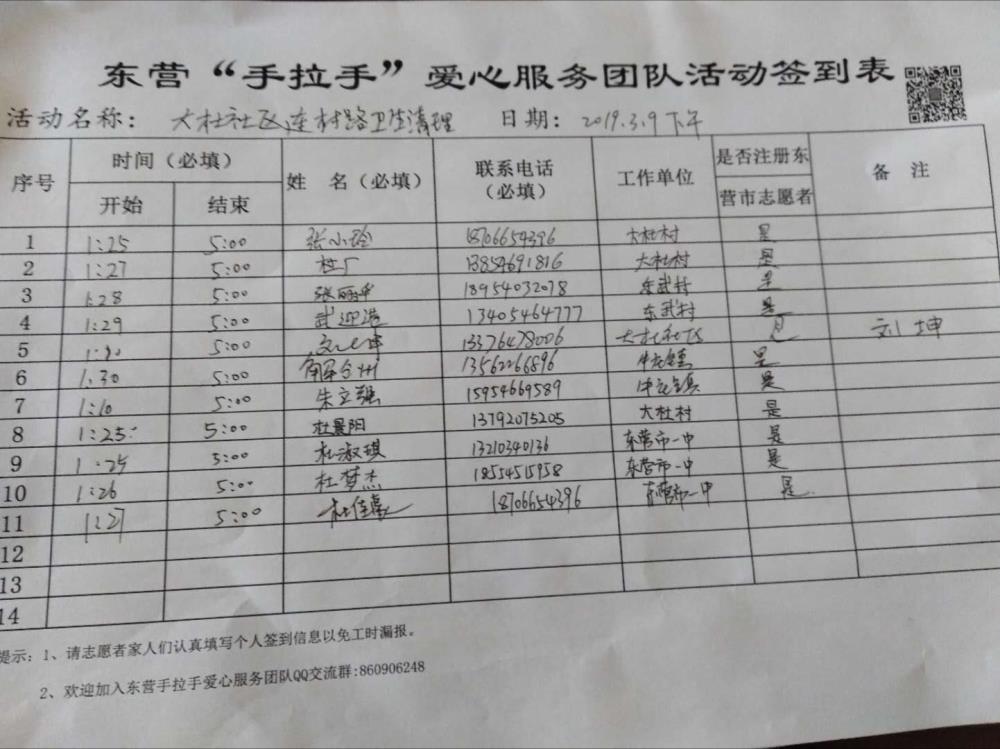 东营“手拉手”爱心服务团队活动签到表
活动名称： 大杜社区连村路卫生清理 日期： 2019.3.9下午
序号 时间（必填） 姓 名（必填） 联系电话（必填） 工作单位 是否注册东营市志愿者 备 注
开始 结束
1 1:25 5:00 张小玲 18706654396 大杜村 是
2 1:27 5:00 杜广 13854691816 大杜村 是
3 1:28 5:00 张丽华 18954032078 东武村 是
4 1:29 5:00 武迎港 13405464777 东武村 是
5 5:00 13376478006 大杜社区 是 刘坤
6 1:30 5:00 解令州 13562266896 牛庄镇 是
7 1:10 5:00 朱立强 15954669589 牛庄镇 是
8 1:25 5:00 杜景阳 13792075205 大杜村 是
9 1:25 5:00 杜淑琪 13210340136 东营市一中 是
10 1:26 5:00 杜梦杰 18554515958 东营市一中 是
11 1:27 5:00 杜佳 18706654396 东营市一中 是
12
13
14
提示：1、请志愿者家人们认真填写个人签到信息以免工时漏报。
2、欢迎加入东营手拉手爱心服务团队QQ交流群:860906248